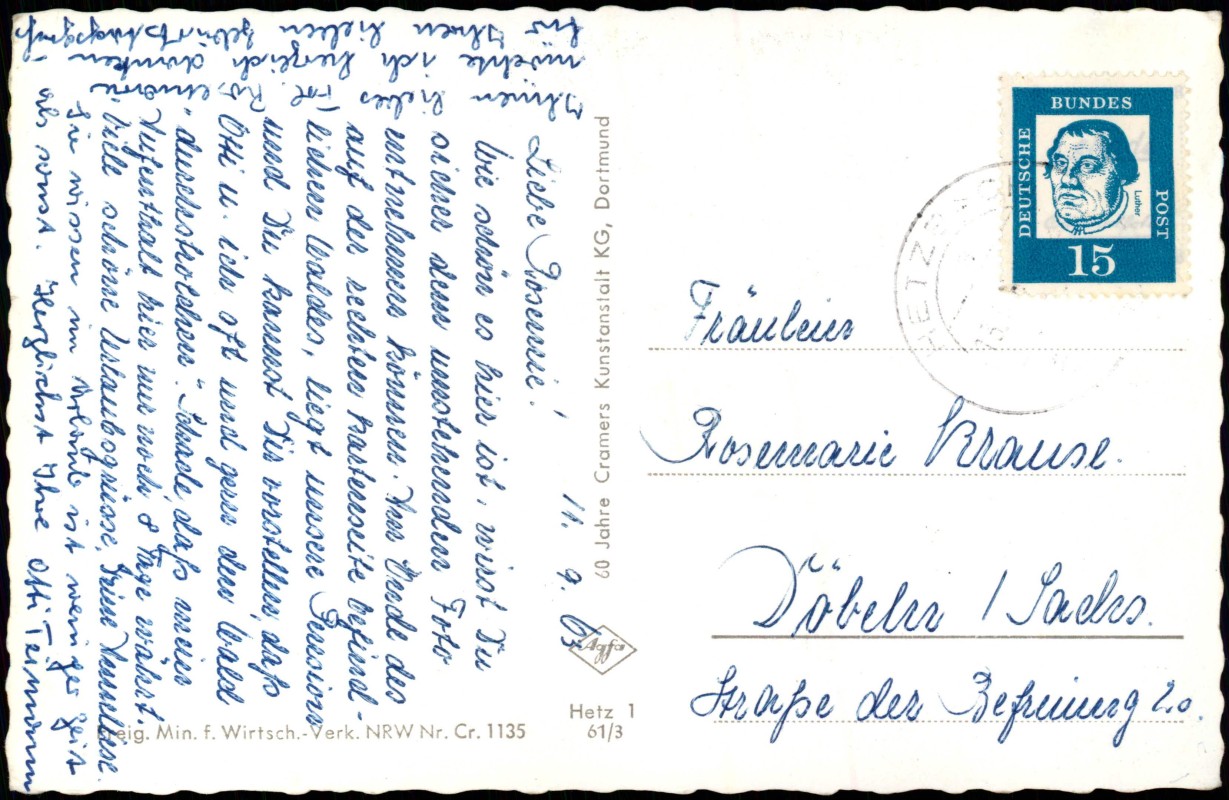 Liebe Rosemie!
11. 9. 63
Wie schön es hier ist, wirst Du
sicher dem umstehenden Foto
entnehmen können. Am Ende des
auf der rechten Kartenseite befind-
lichen Waldes, liegt unsere Pension
und Du kannst Dir vorstellen, daß
Otti u. ich oft und gern den Wald
"durchstrolchen". Schade, daß mein
Aufenthalt hier nur noch 8 Tage währt.
Viele schöne Urlaubsgrüsse, Deine Anneliese.
Ihnen liebes Frl. Rosemarie
möchte ich herzlich danken
für Ihren lieben Geburtstagsgruß
Sie wissen im Urlaube ist weniger Zeit
als sonst. Herzlichst Ihre Otti
60 Jahre Cramers Kunstanstalt KG, Dortmund
Agfa
Hetz 1
61/3
Freig. Min. f. Wirtsch.-Verk. NRW Nr. Cr. 1135
DEUTSCHE
BUNDES
POST
Luther
15
Fräulein
Rosemarie Krause.
Döbeln / Sachs.
Straße der Befreiung 20.